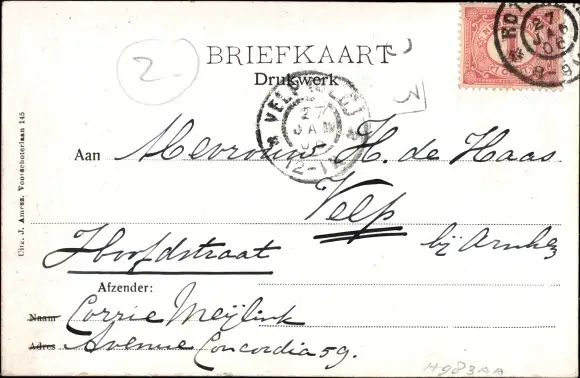 BRIEFKAART
Drukwerk
2
3
VELP (GELD)
27
JAN
12-1
27
JAN
06
8-9
Aan Mevrouw H. de Haas
Velp
Hoofdstraat bij Arnhem
Afzender:
Naam Corrie Meijlink
Adres Avenue Concordia 59.
Uitg. J. Amesz. Voorschoterlaan 145
H983AA